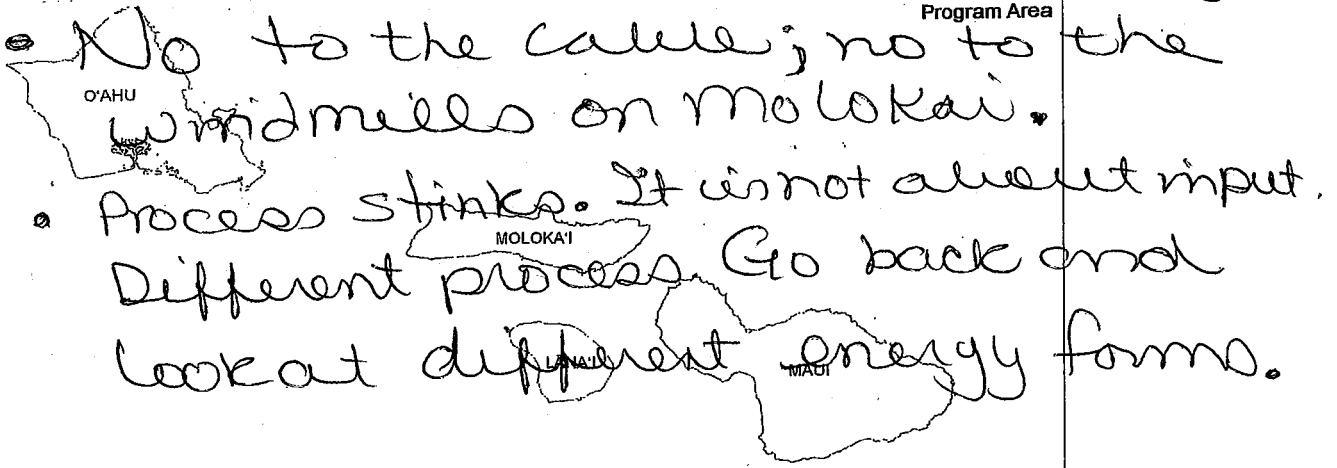 Program Area
• No to the cable; no to the
O'AHU
windmills on Molokai.
• Process stinks. It is not about input.
MOLOKA'I
Different process. Go back and
look at different energy forms.
LĀNA'I
MAUI